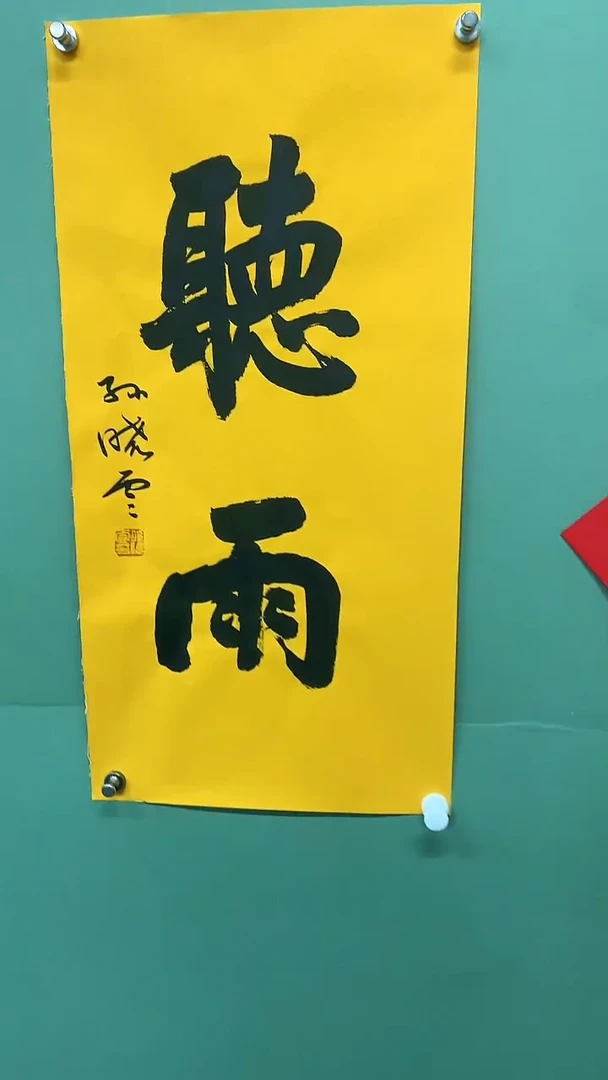 聽雨
孙晓云